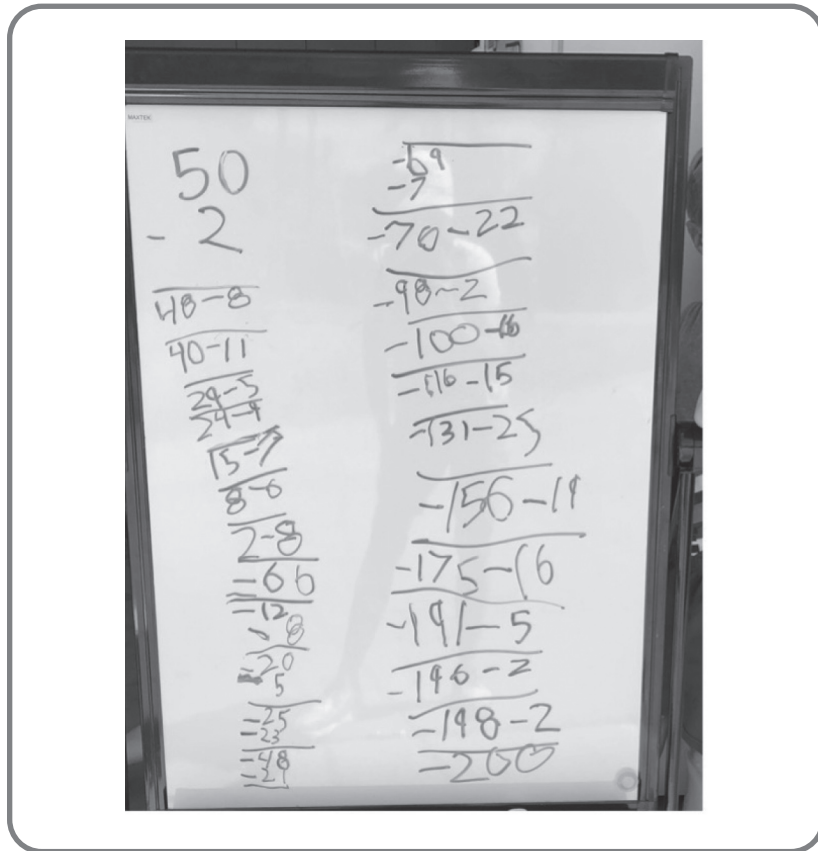 MAXTEK
50
- 2
48-8
40-11
29-5
24-9
15-7
8-6
2-8
-6 6
-12
- 8
-20
- 5
-25
-23
-48
-21
-69
-7
-70-22
-98-2
-100-16
-116-15
-131-25
-156-19
-175-16
-191-5
-196-2
-198-2
-200